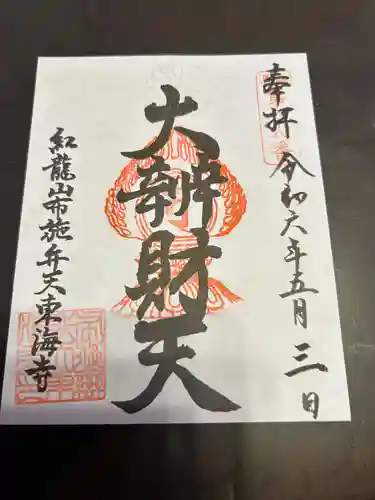 奉拝 令和六年五月三日
大辨財天
紅龍山布施弁天東海寺